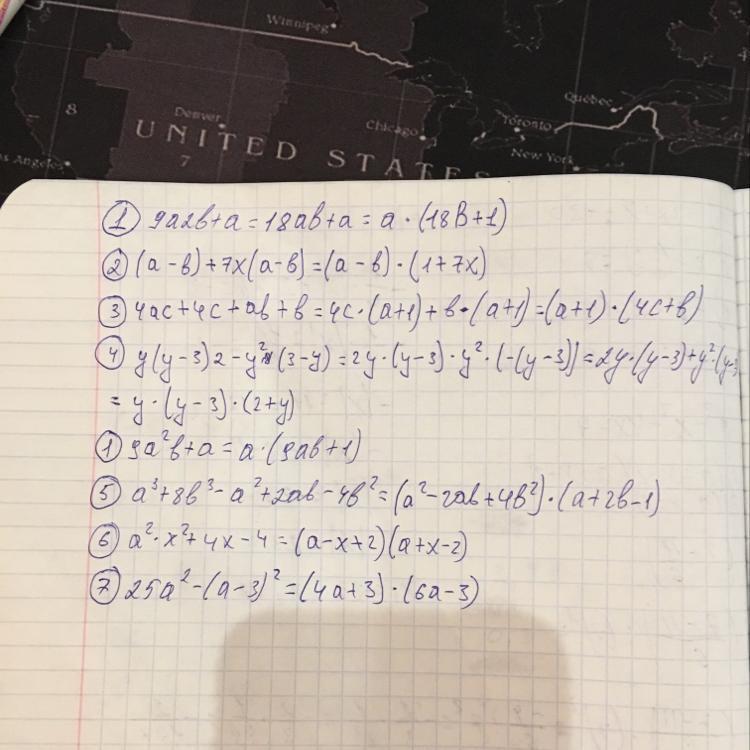 Winnipeg
8
Denver
Chicago
Québec
Toronto
UNITED STATES
New York
7
Angeles
4
① 9a2b+a=18ab+a=a·(18b+1)
② (a-b)+7x(a-b)=(a-b)·(1+7x)
③ 4ac+4c+ab+b=4c·(a+1)+b·(a+1)=(a+1)·(4c+b)
④ y(y-3)2-y²(3-y)=2y·(y-3)·y²·(-(y-3))=2y·(y-3)+y²·(y-3
=y·(y-3)·(2+y)
① 9a²b+a=a·(9ab+1)
⑤ a³+8b³-a²+2ab-4b²=(a²-2ab+4b²)·(a+2b-1)
⑥ a²·x²+4x-4=(a-x+2)(a+x-2)
⑦ 25a²-(a-3)²=(4a+3)·(6a-3)